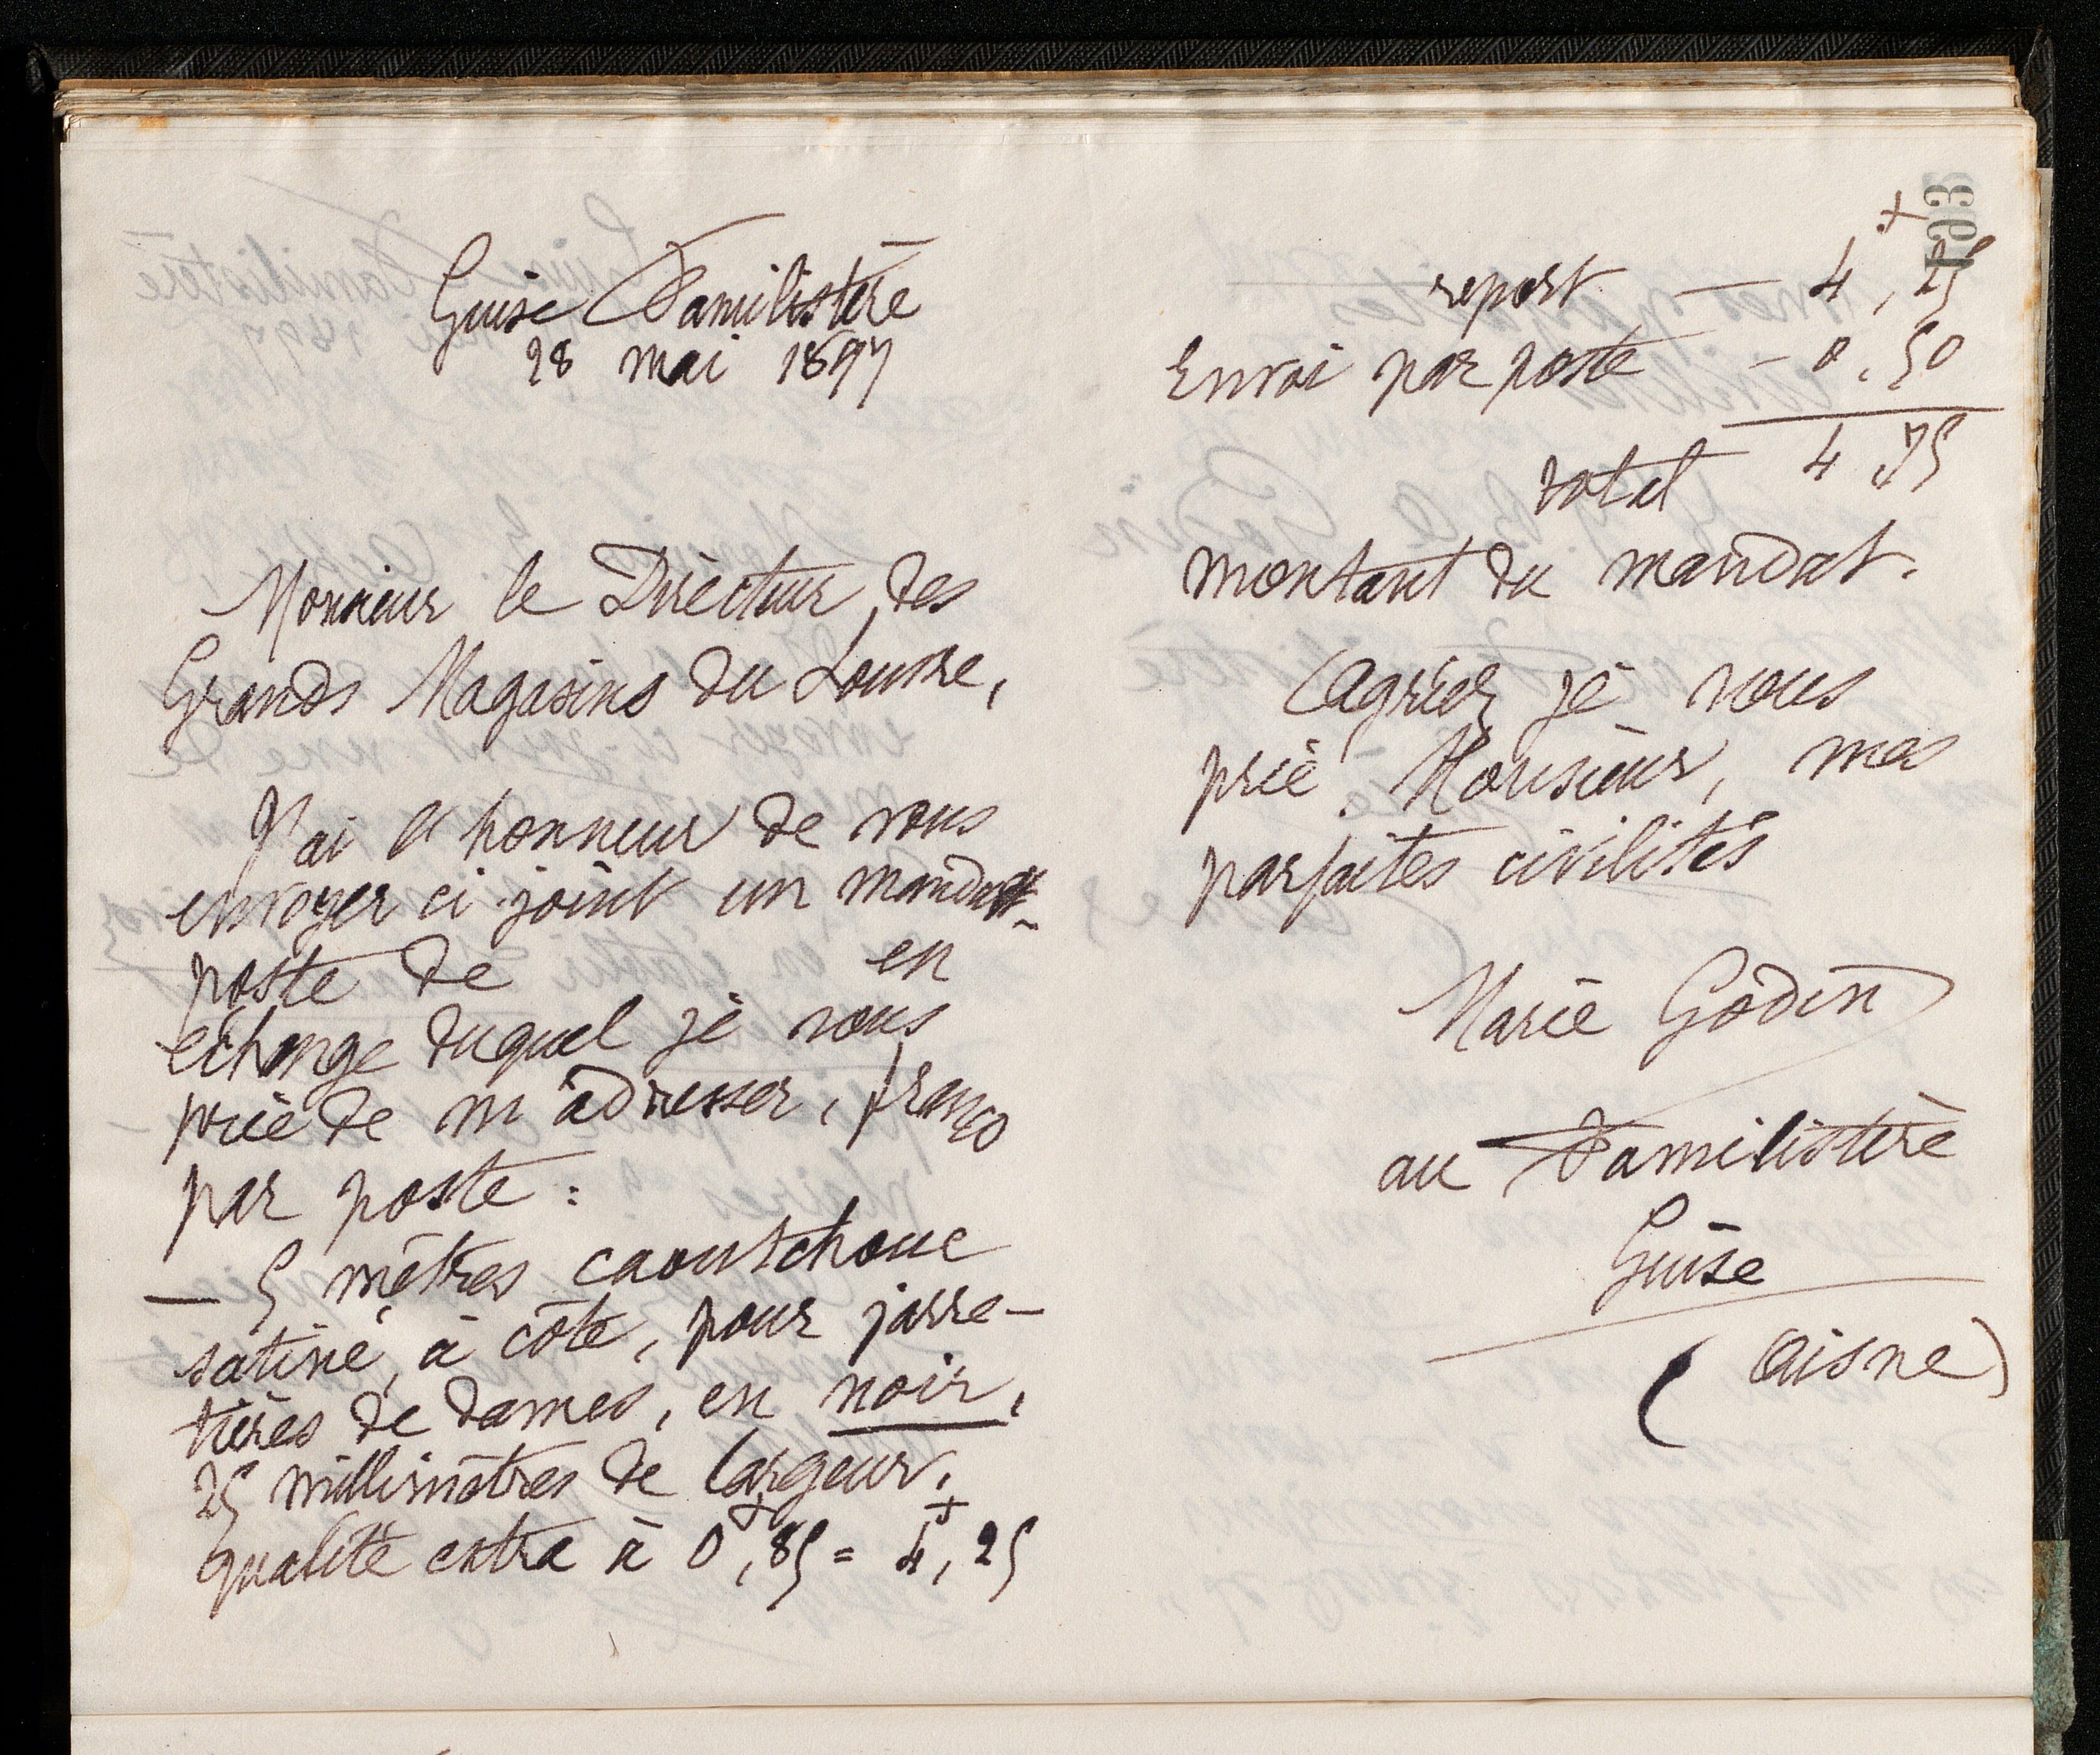 Guise Familistère
28 mai 1897
Monsieur le Directeur des
Grands Magasins du Louvre,
J'ai l'honneur de vous
envoyer ci-joint un mandat-
poste de en
échange duquel je vous
prie de m'adresser, franco
par poste :
— 5 mètres caoutchouc
satiné, à côte, pour jarre-
tières de dames, en noir,
25 millimètres de largeur,
qualité extra à 0f,85 = 4f,25
193
report — 4f,25
Envoi par poste — 0,50
total 4,75
montant du mandat.
Agréez je vous
prie, Monsieur, mes
parfaites civilités
Marie Godin
au Familistère
Guise
(Aisne)